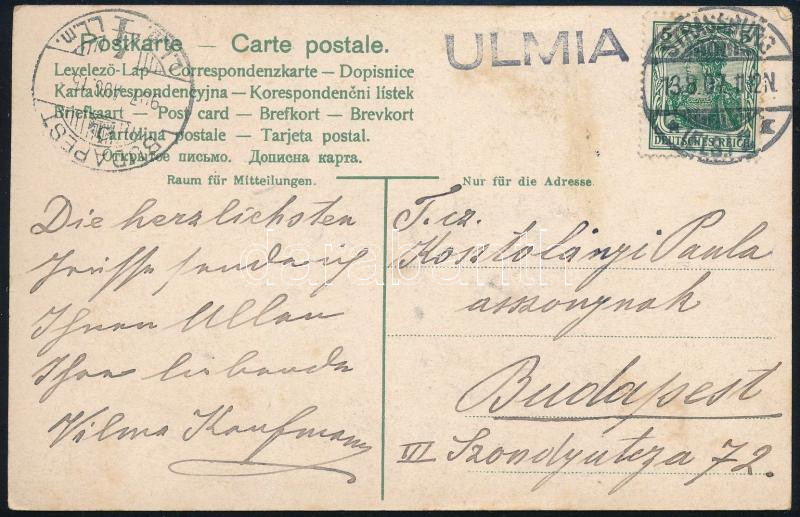 Postkarte — Carte postale.
Levelező-Lap — Correspondenzkarte — Dopisnice
Karta korespondencyjna — Korespondenční lístek
Briefkaart — Post card — Brefkort — Brevkort
Cartolina postale — Tarjeta postal.
Открытое письмо. Дописна карта.
Raum für Mitteilungen.
Die herzlichsten
Grüsse sende ich
Ihnen Allen
Ihre liebende
Vilma Kaufmann
ULMIA
DEUTSCHES REICH
BUDAPEST
Nur für die Adresse.
T. cz.
Kosztolányi Paula
asszonynak
Budapest
VI Szondyutcza 72.
darabanth